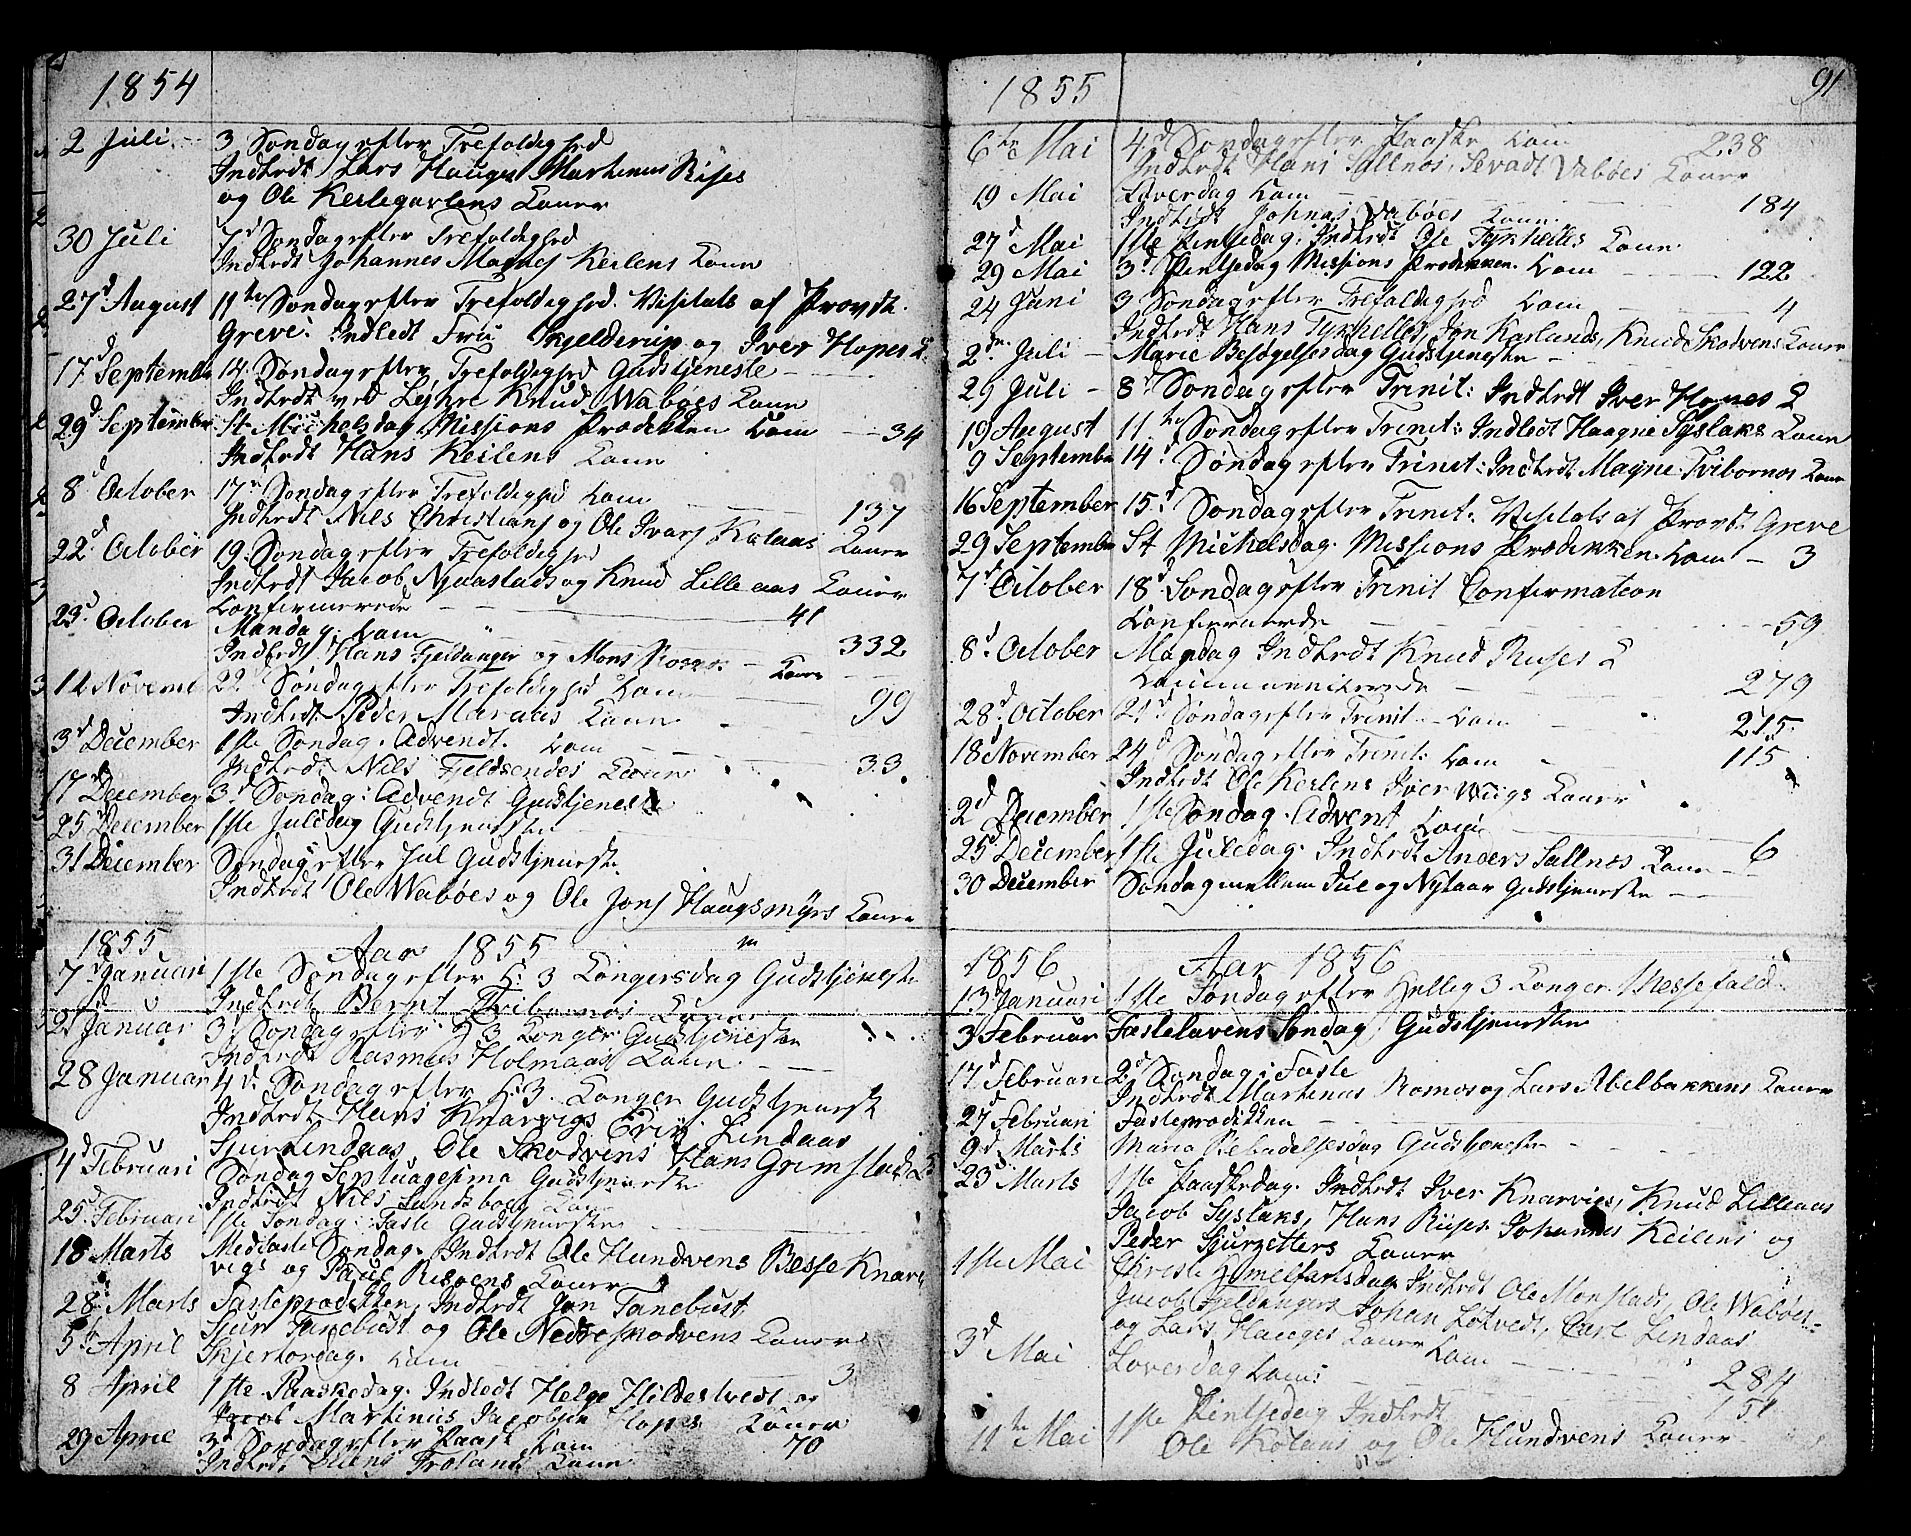 1854
2 Juli 3 Søndag efter Trefoldighed
Indledt Lars Hauges Martinus Rises
og Ole Keilegavlens Koner
30 Juli 7d Søndag efter Trefoldighed
Indledt Johannes Magnes Keilens Kone
27d August 11te Søndag efter Trefoldighed. Visitats af Provst
Greve. Indledt Fru Skjelderup og Iver Hopes K.
17d September 14. Søndag efter Trefoldighed Gudstjeneste
Indledt ved Knud Wabøes Kone
29d September St. Michelsdag Missions Prædikken Kom 34
Indledt Hans Keilens Kone
8d October 17de Søndag efter Trefoldighed Kom 137
Indledt Nils Christians og Ole Ivars Kolaas Koner
22d October 19. Søndag efter Trefoldighed
Indledt Jacob Njaastads og Knud Lilleaas Koner
Confirmerede 41
23d October Mandag. Kom 332
Indledt Hans Fjeldanger og Mons Koner
12 Novemb 22d Søndag efter Trefoldighed Kom 99
Indledt Peder Maraas Kone
3d December 1ste Søndag. Advendt. Kom 33
Indledt Nils Fjeldsendes Kone
17 December 3d Søndag: Advendt Gudstjeneste
25 December 1ste Juledag Gudstjeneste
31 December Søndag efter Jul Gudstjeneste.
Indledt Ole Wabøes og Ole Jons Haugsmyrs Koner
1855 Aar 1855
7d Januari 1ste Søndag efter H: 3 Kongersdag Gudstjeneste
Indledt Bernt Tvibornes Kone
21d Januar 3d Søndag efter H 3 Konger Gudstjeneste
Indledt Rasmus Holmaas Kone
28 Januar 4d. Søndag efter H: 3. Konger Gudstjeneste
Indledt Hans Knarvigs Erik Lindaas
Sjur Lindaas, Ole Skodvens Hans Grimstad K
4d Februari Søndag Septuagesima Gudstjeneste
Indledt Nils Kone
25d Februari 1ste Søndag: Faste Gudstjeneste
18 Marts Midfaste Søndag. Indledt Ole Hundvens Besse Knar
vigs og Paul Risøens Koner
28 Marts Fasteprædikken, Indledt Jon Tanebust
Sjur Tanebust og Ole Nedre Skodvens Koner
5te April Skjertorsdag. Kom 3
8 April 1ste Paaskedag. Indledt Helge Hildestvedt og
Jacob Martinus Jacobsen Hopes Koner
29 April 3d Søndag efter Paask Kom 70
Indledt Kone
91
1855
6te Mai 4d Søndag efter Paaske Kom 238
Indledt Hans Sellnes, Sevadt Vabøes Koner
19 Mai Løverdag Kom 184
Indledt Johnas Vabøes Kone
27d Mai 1ste Pintsedag: Indledt Ole Tyskelles Kone
29 Mai 3d Pintsedag Missions Prædikken. Kom 122
24 Juni 3 Søndag efter Trefoldighed Kom 4
Indledt Hans Tyskelles, Jon Karlands, Knud Skodvens Koner
2den Juli Marie Besøgelsesdag Gudstjeneste
29 Juli 8d Søndag efter Trinit: Indledt Iver Hopes K
19 August 11te Søndag efter Trinit: Indledt Haagne Syslaks Kone
9 September 14d Søndag efter Trinit: Indledt Magne Tvibornes Kone
16 September 15d Søndag efter Trinit: Visitats af Provst Greve
29 September St Michelsdag. Missions Prædikken. Kom 3
7d October 18d Søndag efter Trinit Confirmation
Confirmerede 59
8d October Mandag Indledt Knud Rises K
Communicerede 279
28d October 21d Søndag efter Trinit Kom 215
18 November 24d Søndag efter Trinit: Kom 115
Indledt Ole Keilens Iver Wiigs Koner
2d December 1ste Søndag. Advent Kom
25d December 1ste Juledag. Indledt Anders Sellnes Kone 6
30 December Søndag mellem Jul og Nytaar Gudstjeneste
1856 Aar 1856
13d Januari 1ste Søndag efter Hellig 3 Konger Messefald
3 Februar Fastelavens Søndag Gudstjeneste
17d Februari 2d Søndag i Faste
Indledt Martinus Romos og Lars Abelbakkens Koner
27d Februari Fasteprædikken
9d Marts Maria Bebudelsesdag Gudstjeneste
23d Marts 1ste Paaskedag. Indledt Iver Knarvigs, Knud Lilleaas
Jacob Syslaks, Hans Rises. Johannes Keilens og
Peder Sjursetters Koner
1ste Mai Christi Himelfartsdag. Indledt Ole Monstads, Ole Wabøes
Jacob Fjeldangers Johan Løtvedt, Carl Lindaas
og Lars Hauges Koner Kom
3d Mai Løverdag Kom: 284
11te Mai 1ste Pintsedag Indledt 151
Ole Kolaas og Ole Hundvens Koner